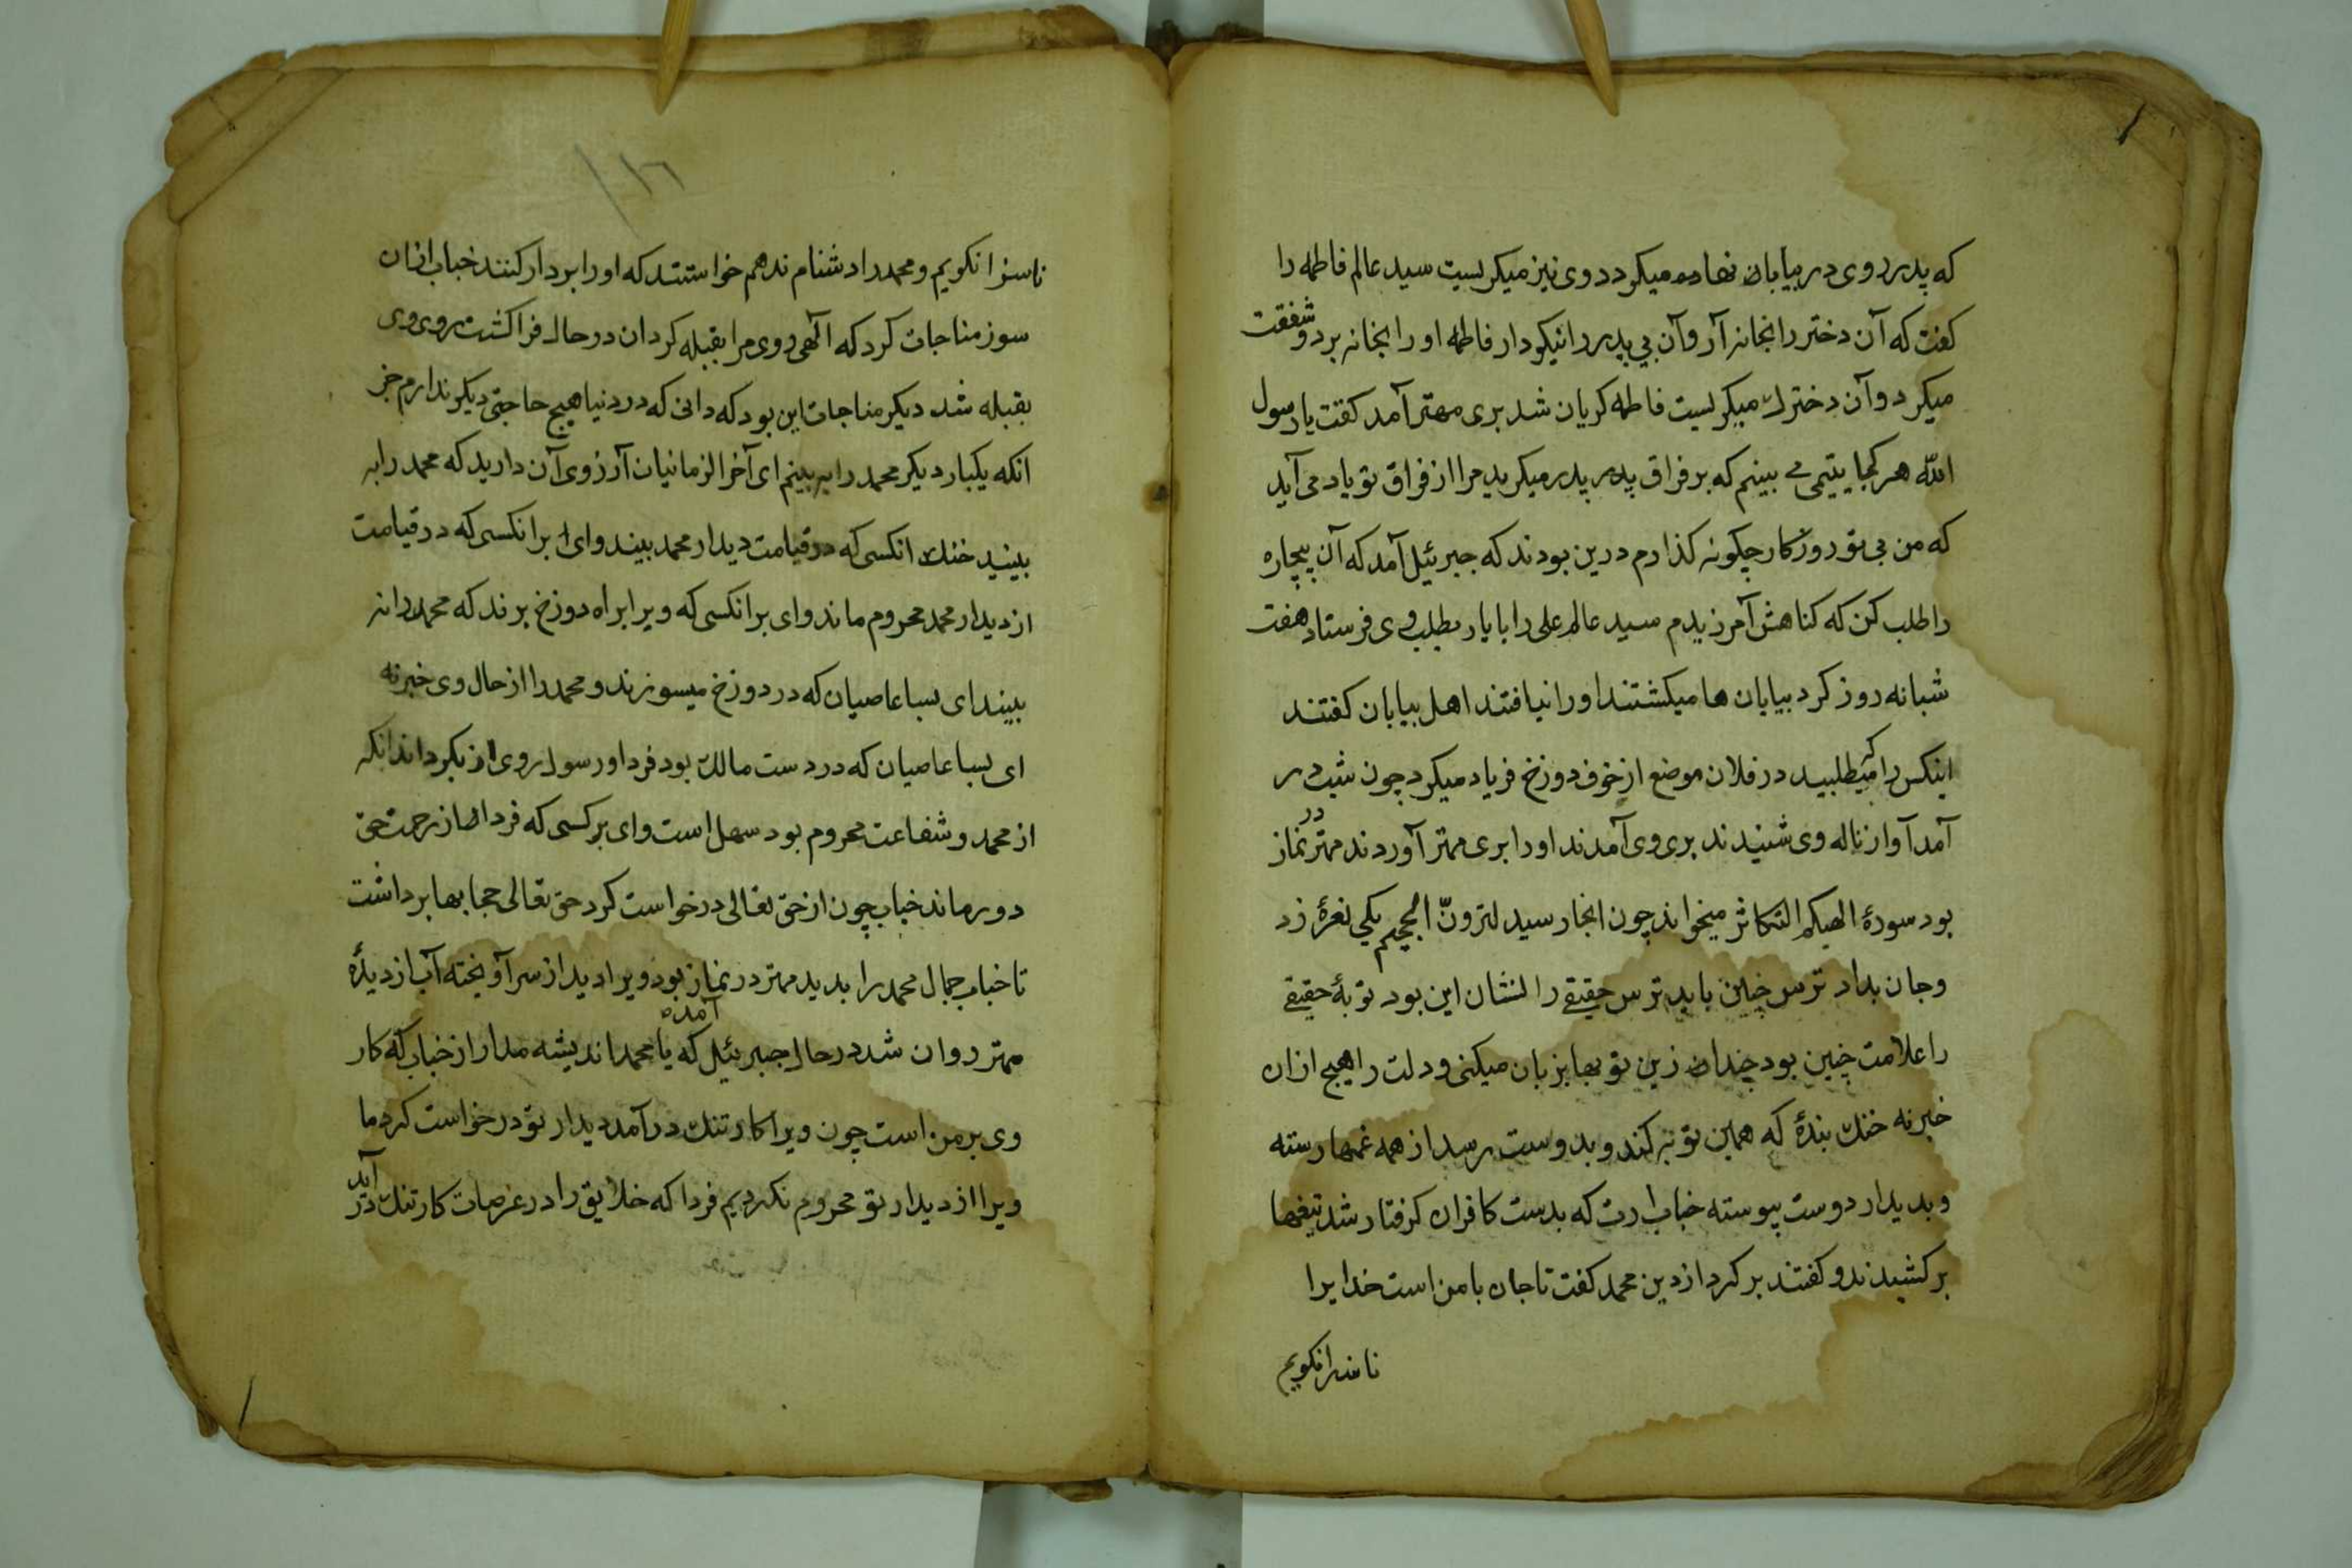 که پدر روی در بیابان نهاده میکرد دوی نیز میکریست سید عالم فاطمه را
کفت که آن دختر را بخانه آر وآن بی پدر را نیکو دار فاطمه او را بخانه برد و شفقت
میکرد وآن دخترك میکریست فاطمه کریان شد بری مهتر آمد کفت یا رسول
الله هر کجا یتیمی می بینم که بر فراق پدر پدر میکرید مرا از فراق تو یاد می آید
که من بی تو روزکار چکونه کذارم درین بودند که جبرئیل آمد که آن بیچاره
را طلب کن که کناهش آمرزیدم سید عالم علی را با یار بطلب وی فرستاد هفت
شبانه روز کرد بیابان ها میکشتند او را نیافتند اهل بیابان کفتند
اینکس را که میطلبید در فلان موضع از خوف دوزخ فریاد میکرد چون شب در
آمد آواز ناله وی شنیدند بری وی آمدند او را بری مهتر آوردند مهتر در نماز
بود سورهٔ الهیکم التکاثر میخواند چون انجا رسید لترونّ الجحیم یکی نعرهٔ زد
وجان بداد ترس چنین باید ترس حقیقی را نشان این بود توبهٔ حقیقی
را علامت چنین بود چندان زین توبها بزبان میکنی و دلت را هیچ ازان
خبر نه خنك بندهٔ که همین توبه کند و بدوست رسد از همه غمها رسته
وبدیدار دوست پیوسته خباب ارت که بدست کافران کرفتار شد تیغها
بر کشیدند و کفتند بر کرد از دین محمد کفت تا جان با من است خدایرا
ناسزا نکویم
١١٦
ناسزا نکویم و محمد را دشنام ندهم خواستند که او را بر دار کنند خباب ازان
سوز مناجات کرد که الهی روی مرا بقبله کردان در حال فرا کشت روی وی
بقبله شد دیکر مناجات این بود که دانی که در دنیا هیچ حاجتی دیکر ندارم جز
انکه یکبار دیکر محمد را به بینم ای آخر الزمانیان آرزوی آن دارید که محمد را به
بینید خنك انکسی که در قیامت دیدار محمد بیند وای بر انکسی که در قیامت
از دیدار محمد محروم ماند وای بر انکسی که ویرا براه دوزخ برند که محمد را نه
بیند ای بسا عاصیان که در دوزخ میسوزند و محمد را از حال وی خبر نه
ای بسا عاصیان که در دست مالك بود فردا و رسول روی از بکرداند انکه
از محمد و شفاعت محروم بود سهل است وای بر کسی که فردا از رحمت حق
دور ماند خباب چون از حق تعالی درخواست کرد حق تعالی حجابها برداشت
تا خباب جمال محمد را بدید مهتر در نماز بود ویرا دید از سر آویخته آب از دیدهٔ
مهتر روان شد در حال جبرئیل آمده که یا محمد اندیشه مدار از خباب که کار
وی بر من است چون ویرا کار تنك در آمد دیدار تو درخواست کرد ما
ویرا از دیدار تو محروم نکردیم فردا که خلایق را در عرصات کار تنك در آید